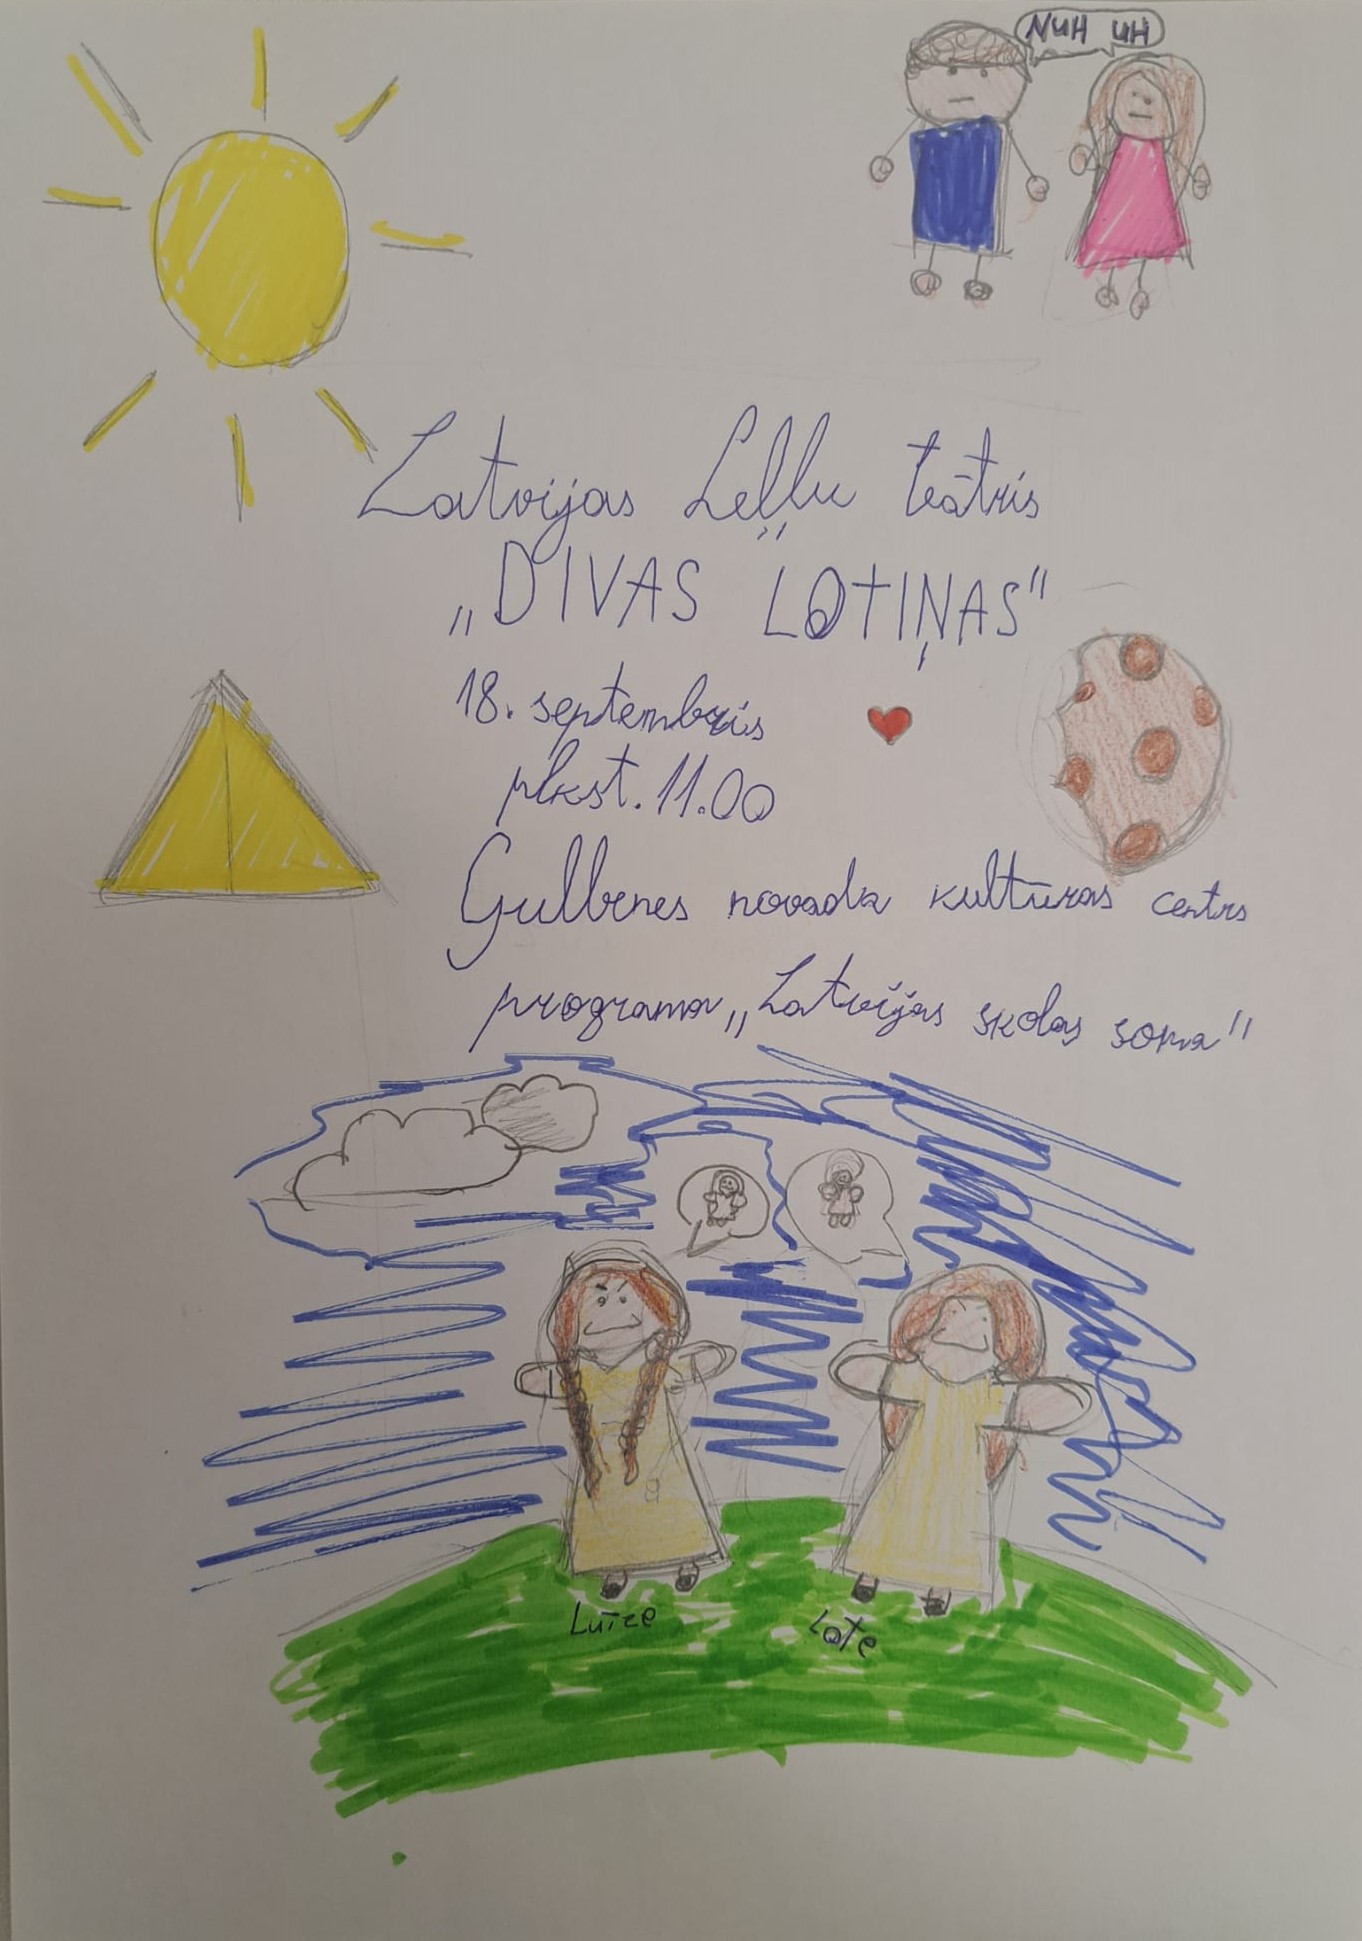 NUH UH
Latvijas Leļļu teātris
„DIVAS LOTIŅAS"
18. septembris
plkst. 11.00
Gulbenes novada kultūras centrs
programa „Latvijas skolas soma"
Luīze
Lote